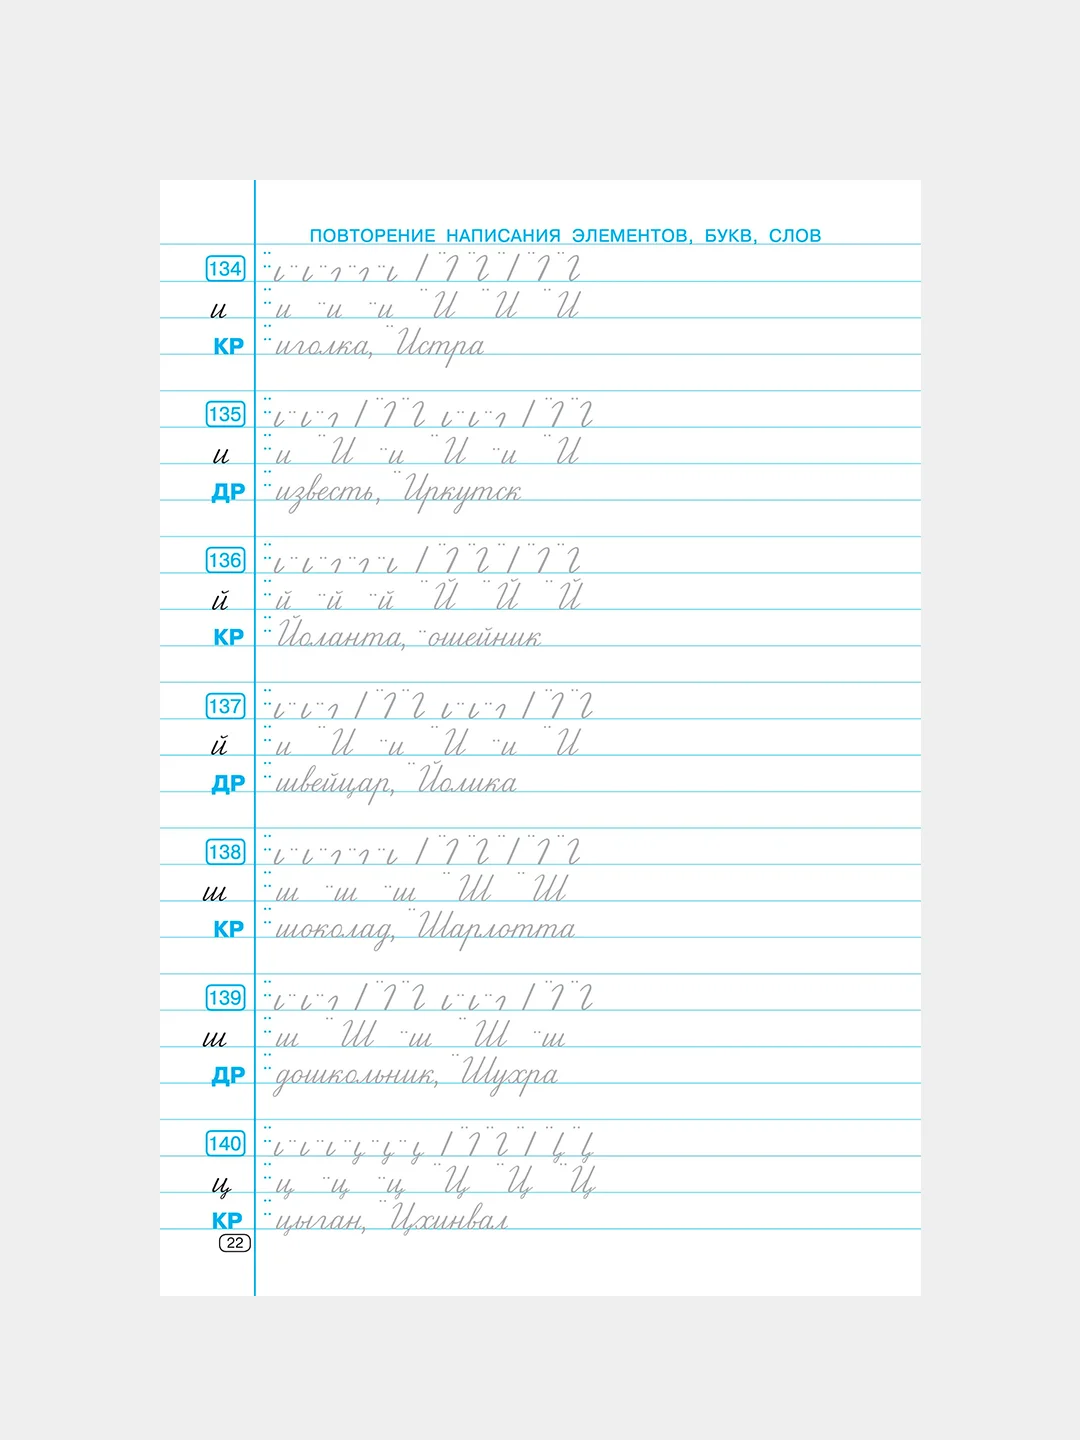 ПОВТОРЕНИЕ НАПИСАНИЯ ЭЛЕМЕНТОВ, БУКВ, СЛОВ
134
и и и и И И И
КР иголка, Истра
135
и и И и И и И
ДР известь, Иркутск
136
й й й й Й Й Й
КР Йоланта, ошейник
137
й и И и И и И
ДР швейцар, Йолика
138
ш ш ш ш Ш Ш
КР шоколад, Шарлотта
139
ш ш Ш ш Ш ш
ДР дошкольник, Шухра
140
ц ц ц ц Ц Ц Ц
КР цыган, Цхинвал
22